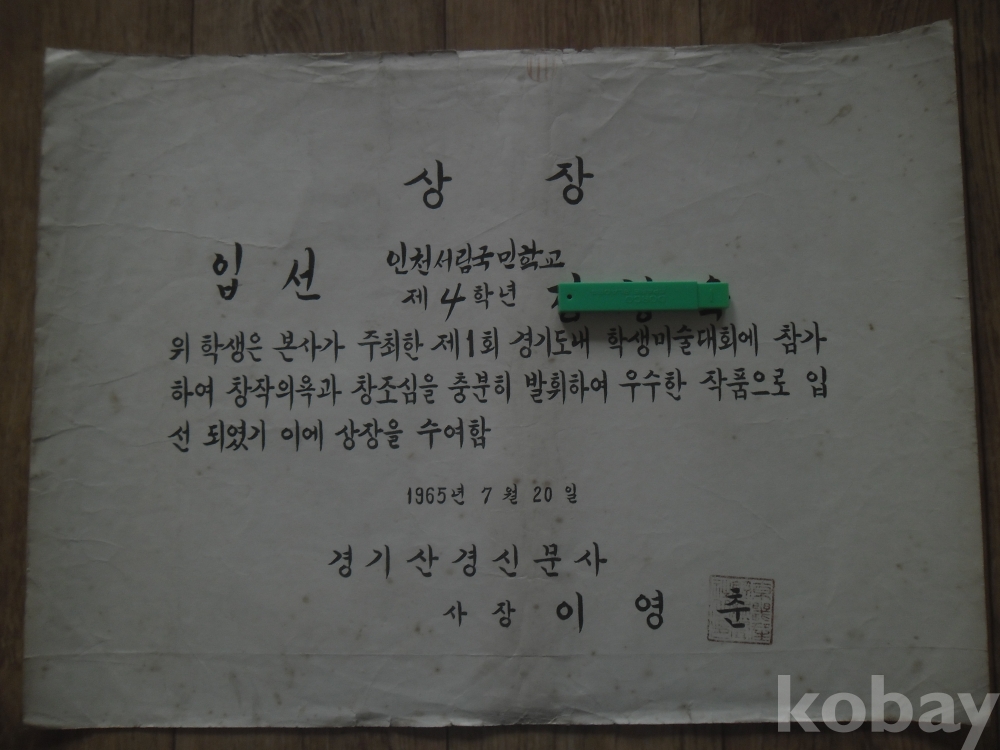 상 장
입 선
인천서림국민학교
제 4 학년
위 학생은 본사가 주최한 제1회 경기도내 학생미술대회에 참가
하여 창작의욕과 창조심을 충분히 발휘하여 우수한 작품으로 입
선 되였기 이에 상장을 수여함
1965년 7월 20일
경기산경신문사
사장 이 영 춘
kobay